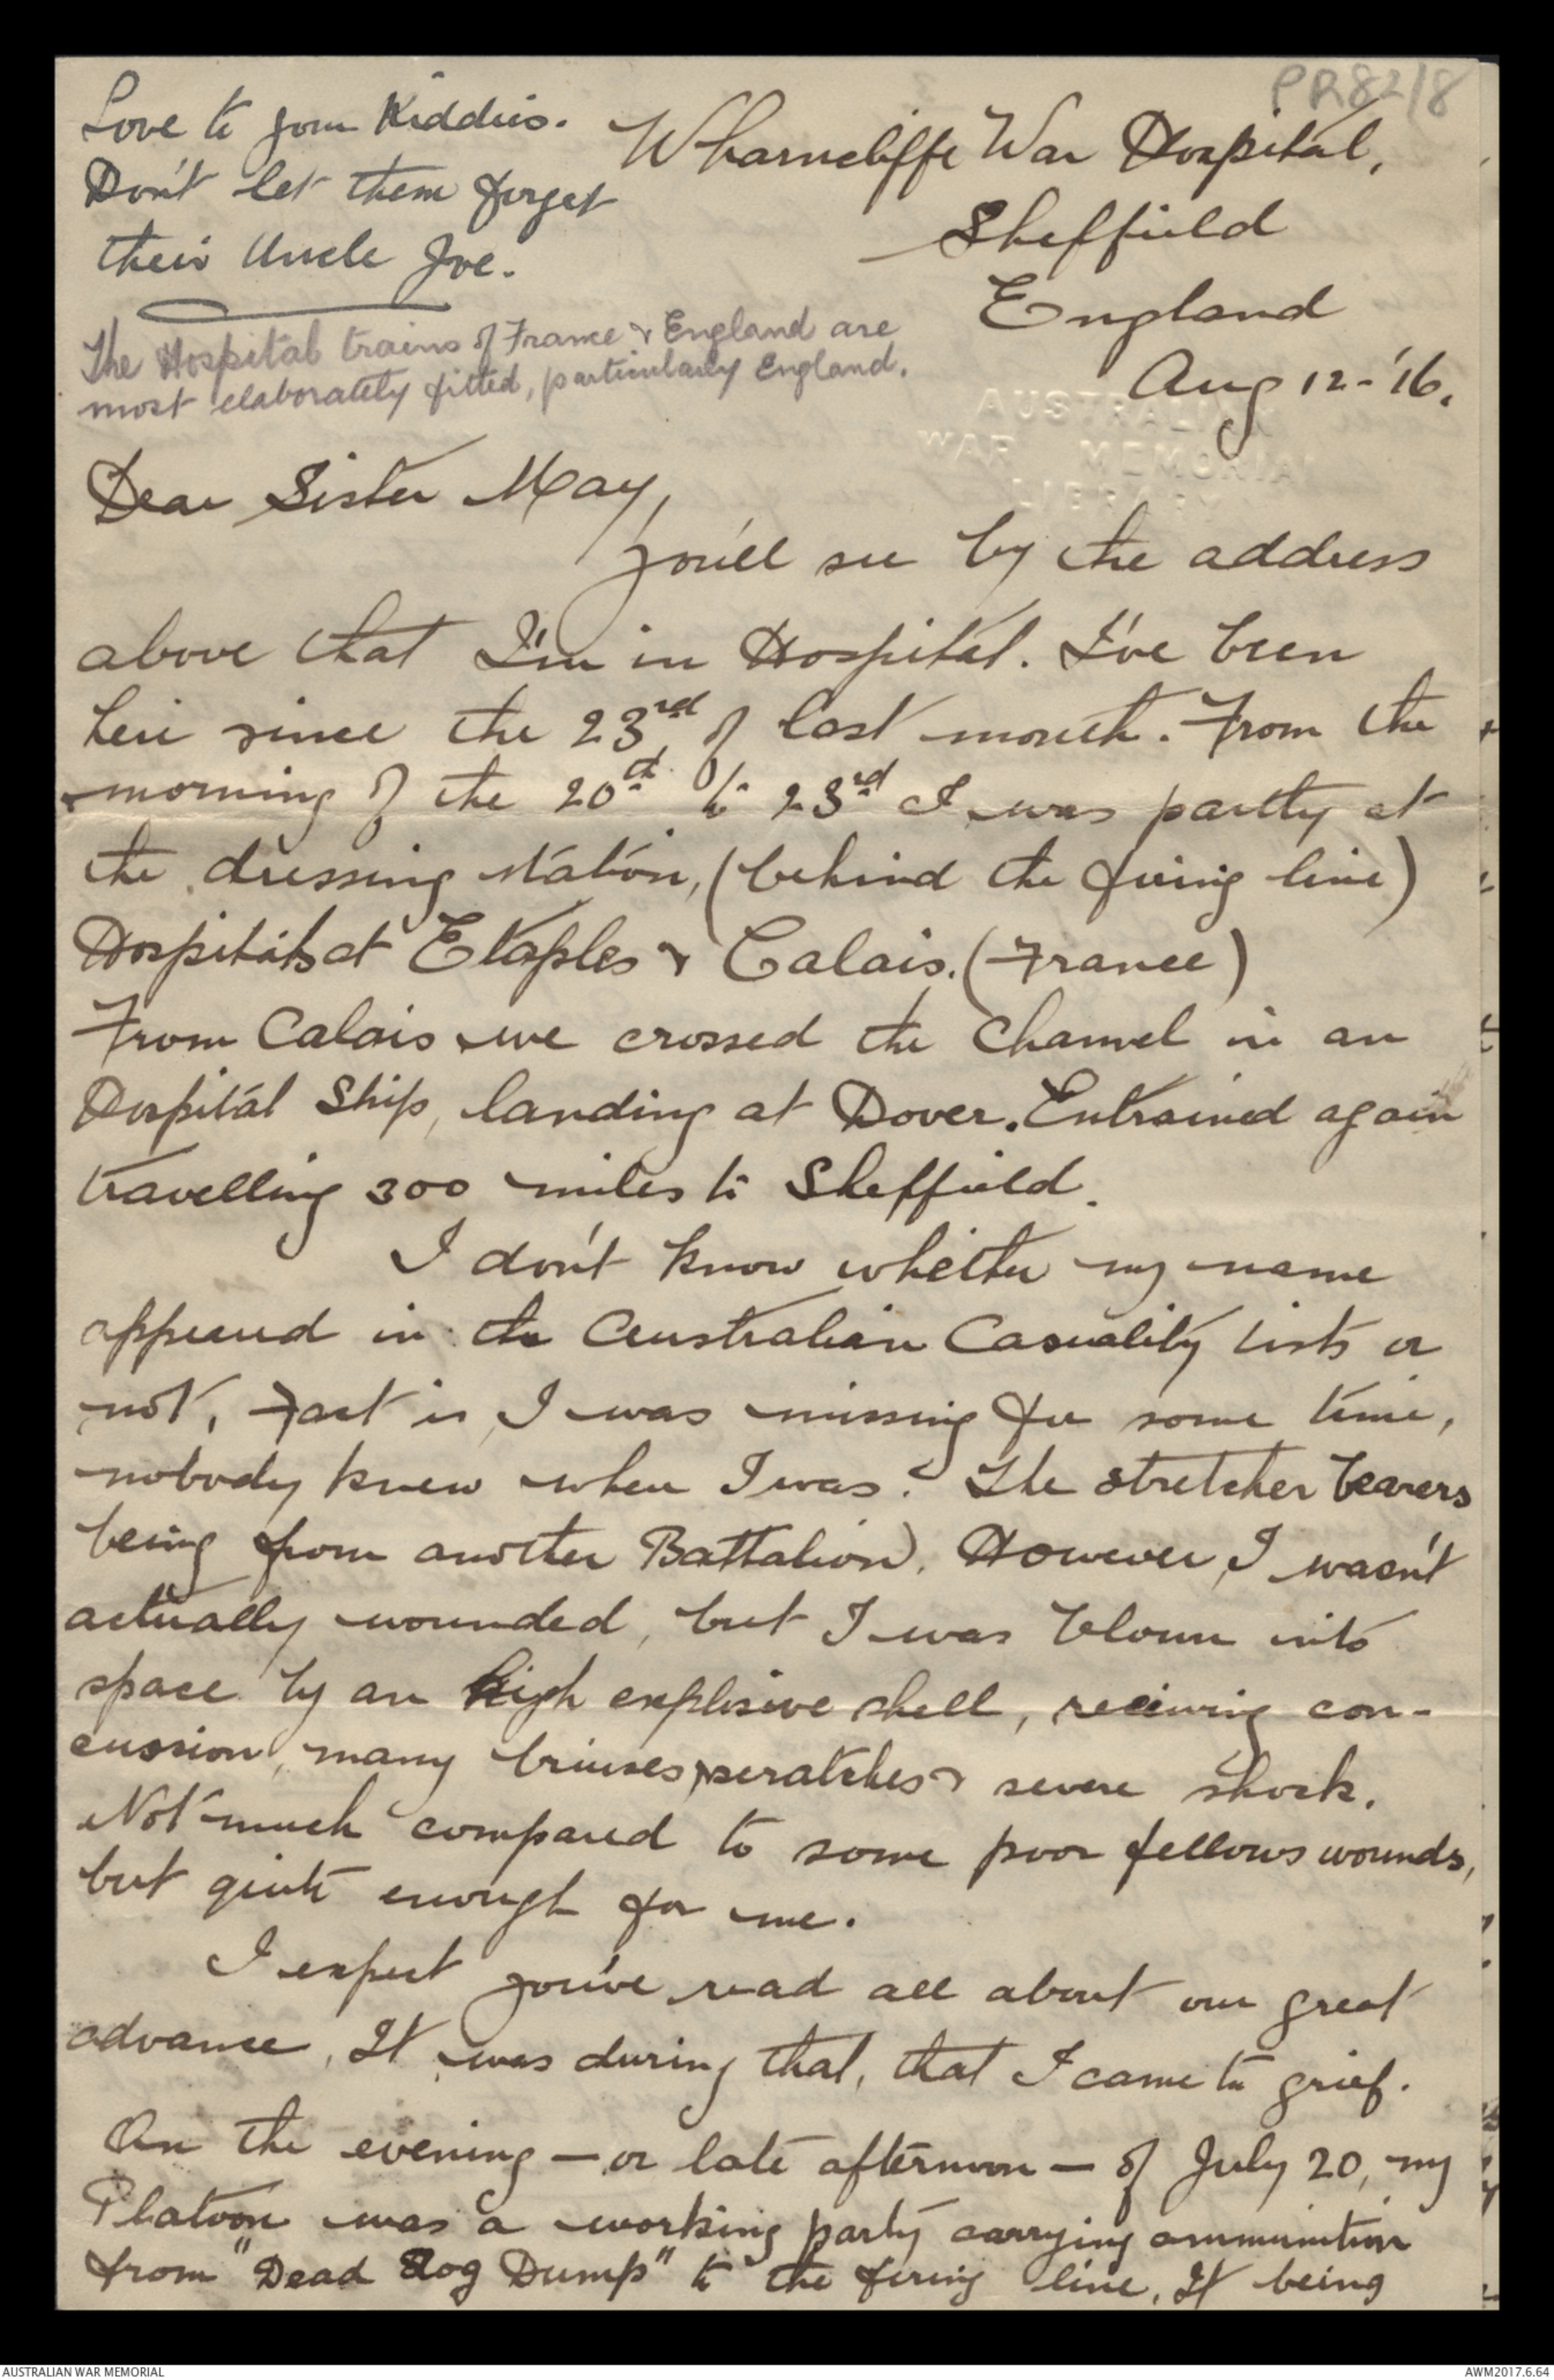 PR82/8
Love to your Kiddies.
Don't let them forget
their Uncle Joe.
The Hospital trains of France & England are
most elaborately fitted, particularly England.
Wharncliffe War Hospital,
Sheffield
England
Aug 12-'16.
AUSTRALIAN
WAR MEMORIAL
LIBRARY
Dear Sister May,
You'll see by the address
above that I'm in Hospital. I've been
here since the 23rd of last month. From the
morning of the 20th to 23rd I was partly at
the dressing station, (behind the firing line)
Hospitals at Etaples & Calais. (France)
From Calais we crossed the Channel in an
Hospital Ship, landing at Dover. Entrained again
travelling 300 miles to Sheffield.
I don't know whether my name
appeared in the Australian Casuality lists or
not, Fact is, I was missing for some time,
nobody knew where I was. (The stretcher bearers
being from another Battalion). However, I wasn't
actually wounded, but I was blown into
space by an high explosive shell, receiving con-
cussion, many bruises, scratches & severe shock.
Not much compared to some poor fellows wounds,
but quite enough for me.
I expect you've read all about our great
advance. It was during that, that I came to grief.
On the evening — or late afternoon — of July 20, my
Platoon was a working party carrying ammunition
from "Dead Dog Dump" to the firing line. It being
AUSTRALIAN WAR MEMORIAL
AWM2017.6.64